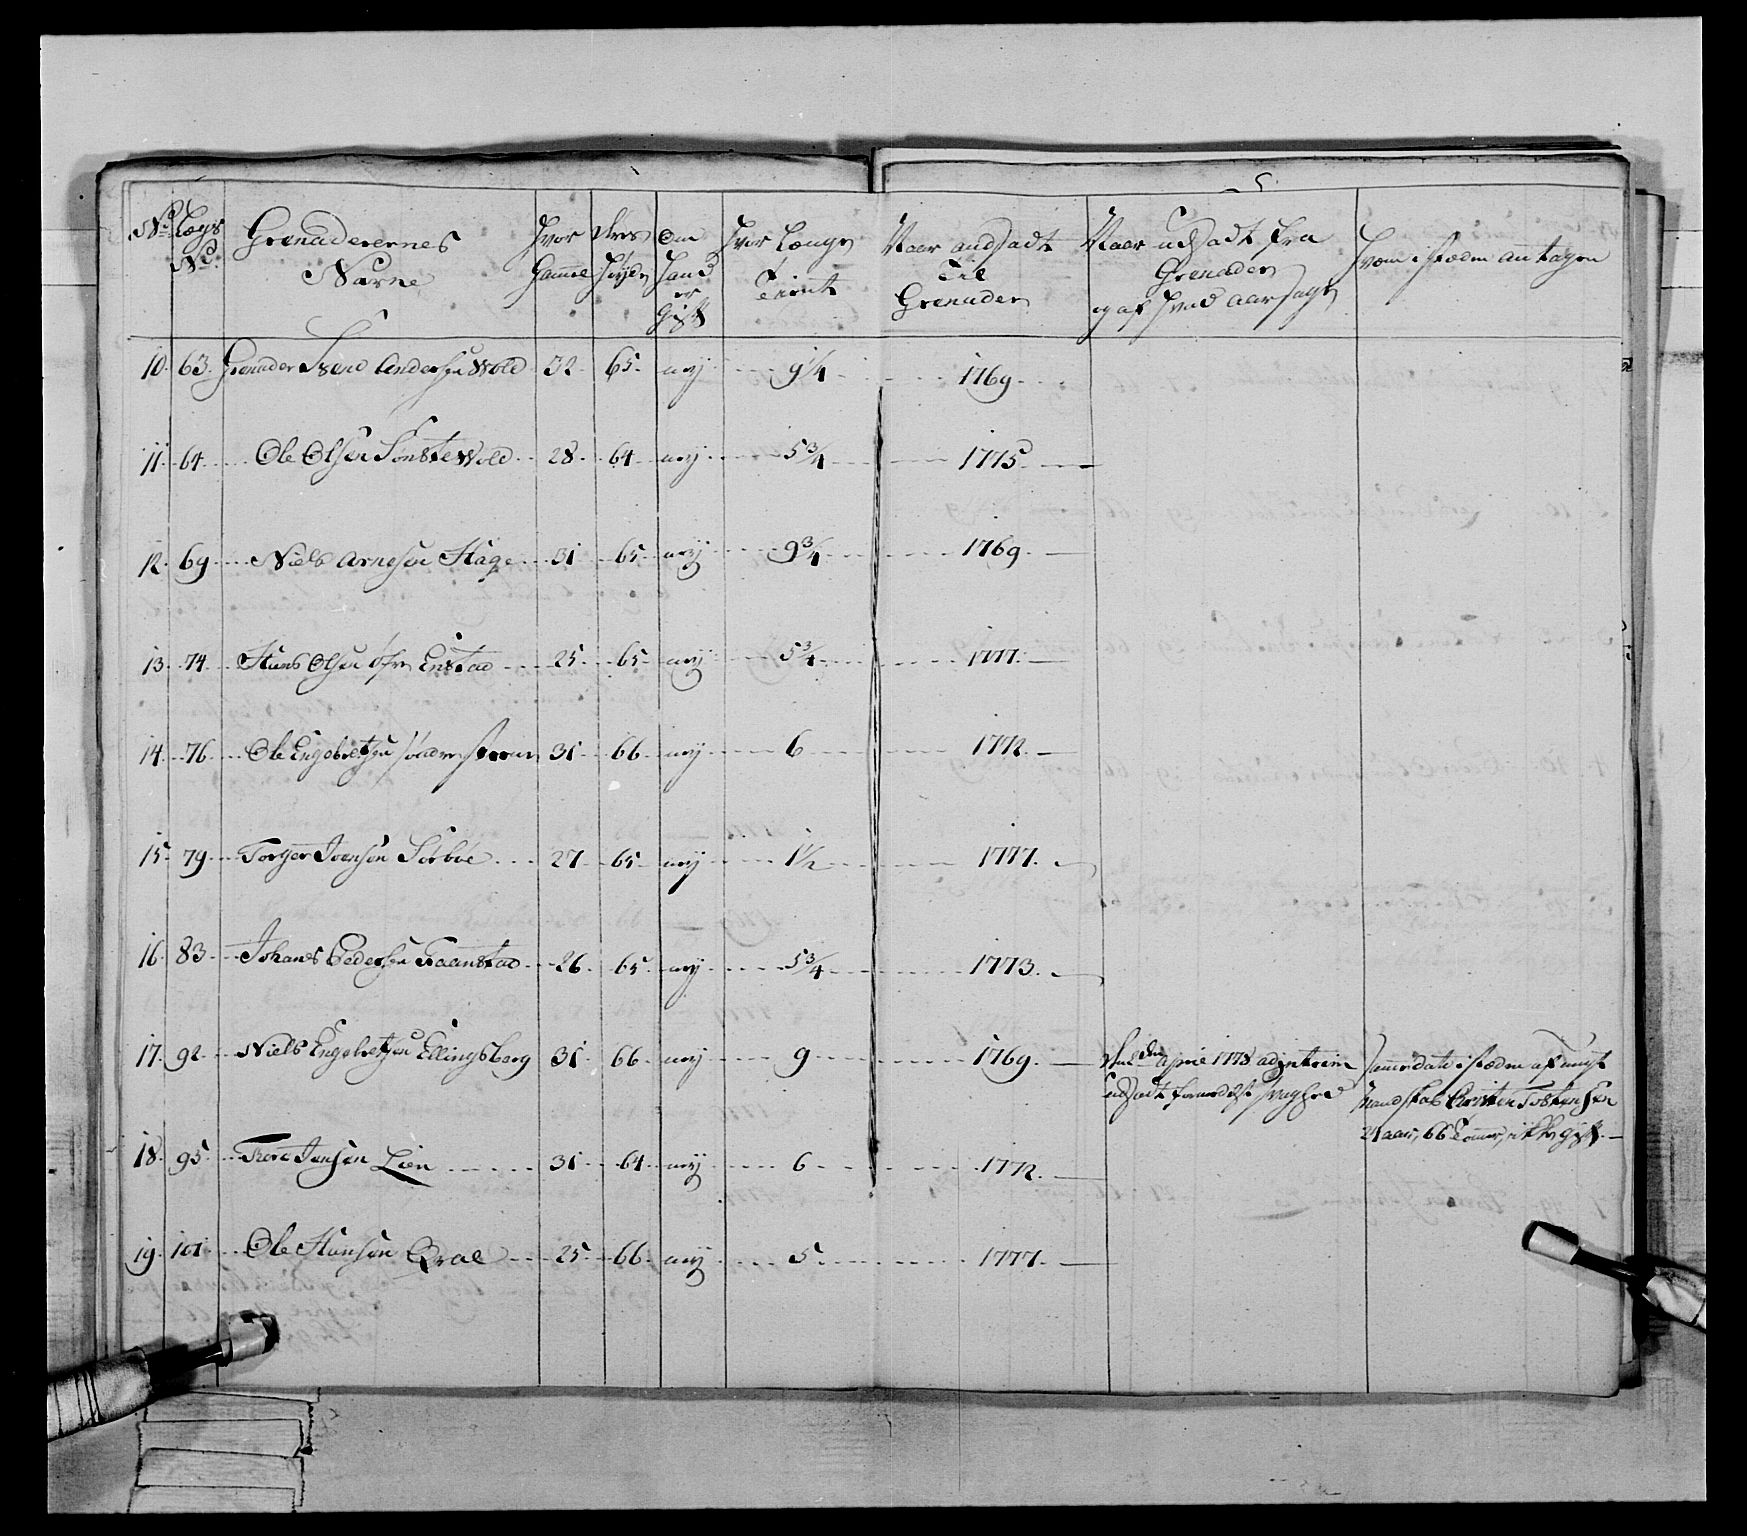 5
No Lægs No Grenaderernes Navne Hvor Gammel Deres Høyde Om Hand er Gift Hvor Længe Tient Naar andsadt Til Grenader Naar udsadt fra Grenader og af Hvad Aarsage Hvem i stæden antagen
10. 63. Grenader Svend Andersen Wold 32 65 nej 9 1/4 1769
11. 64. Ole Olsen SønsteWold 28 64 nej 5 3/4 1775
12. 69. Niels Arnesen Hage 31 65 nej 9 3/4 1769
13. 74. Hans Olsen øfre Enstad 25 65 nej 5 3/4 1777
14. 76. Ole Engebretsen søndre 31 66 nej 6 1772
15. 79. Torger Joensøn Sørboe 27 65 nej 1 1/2 1777
16. 83. Johanes Pedersen Raanstad 26 65 nej 5 3/4 1773
17. 92. Niels Engebretsen Ellingsberg 31 66 nej 9 1769 den april 1778 ad interim i stæden af nyst
udsadt formedelst svaghed Mandskab Christen Tostensen
21 aar, 66 Tomer, ikke gift
18. 95. Tore Jensen Lien 31 64 nej 6 1772
19. 101. Ole Hansøn Qvale 25 66 nej 5 1777